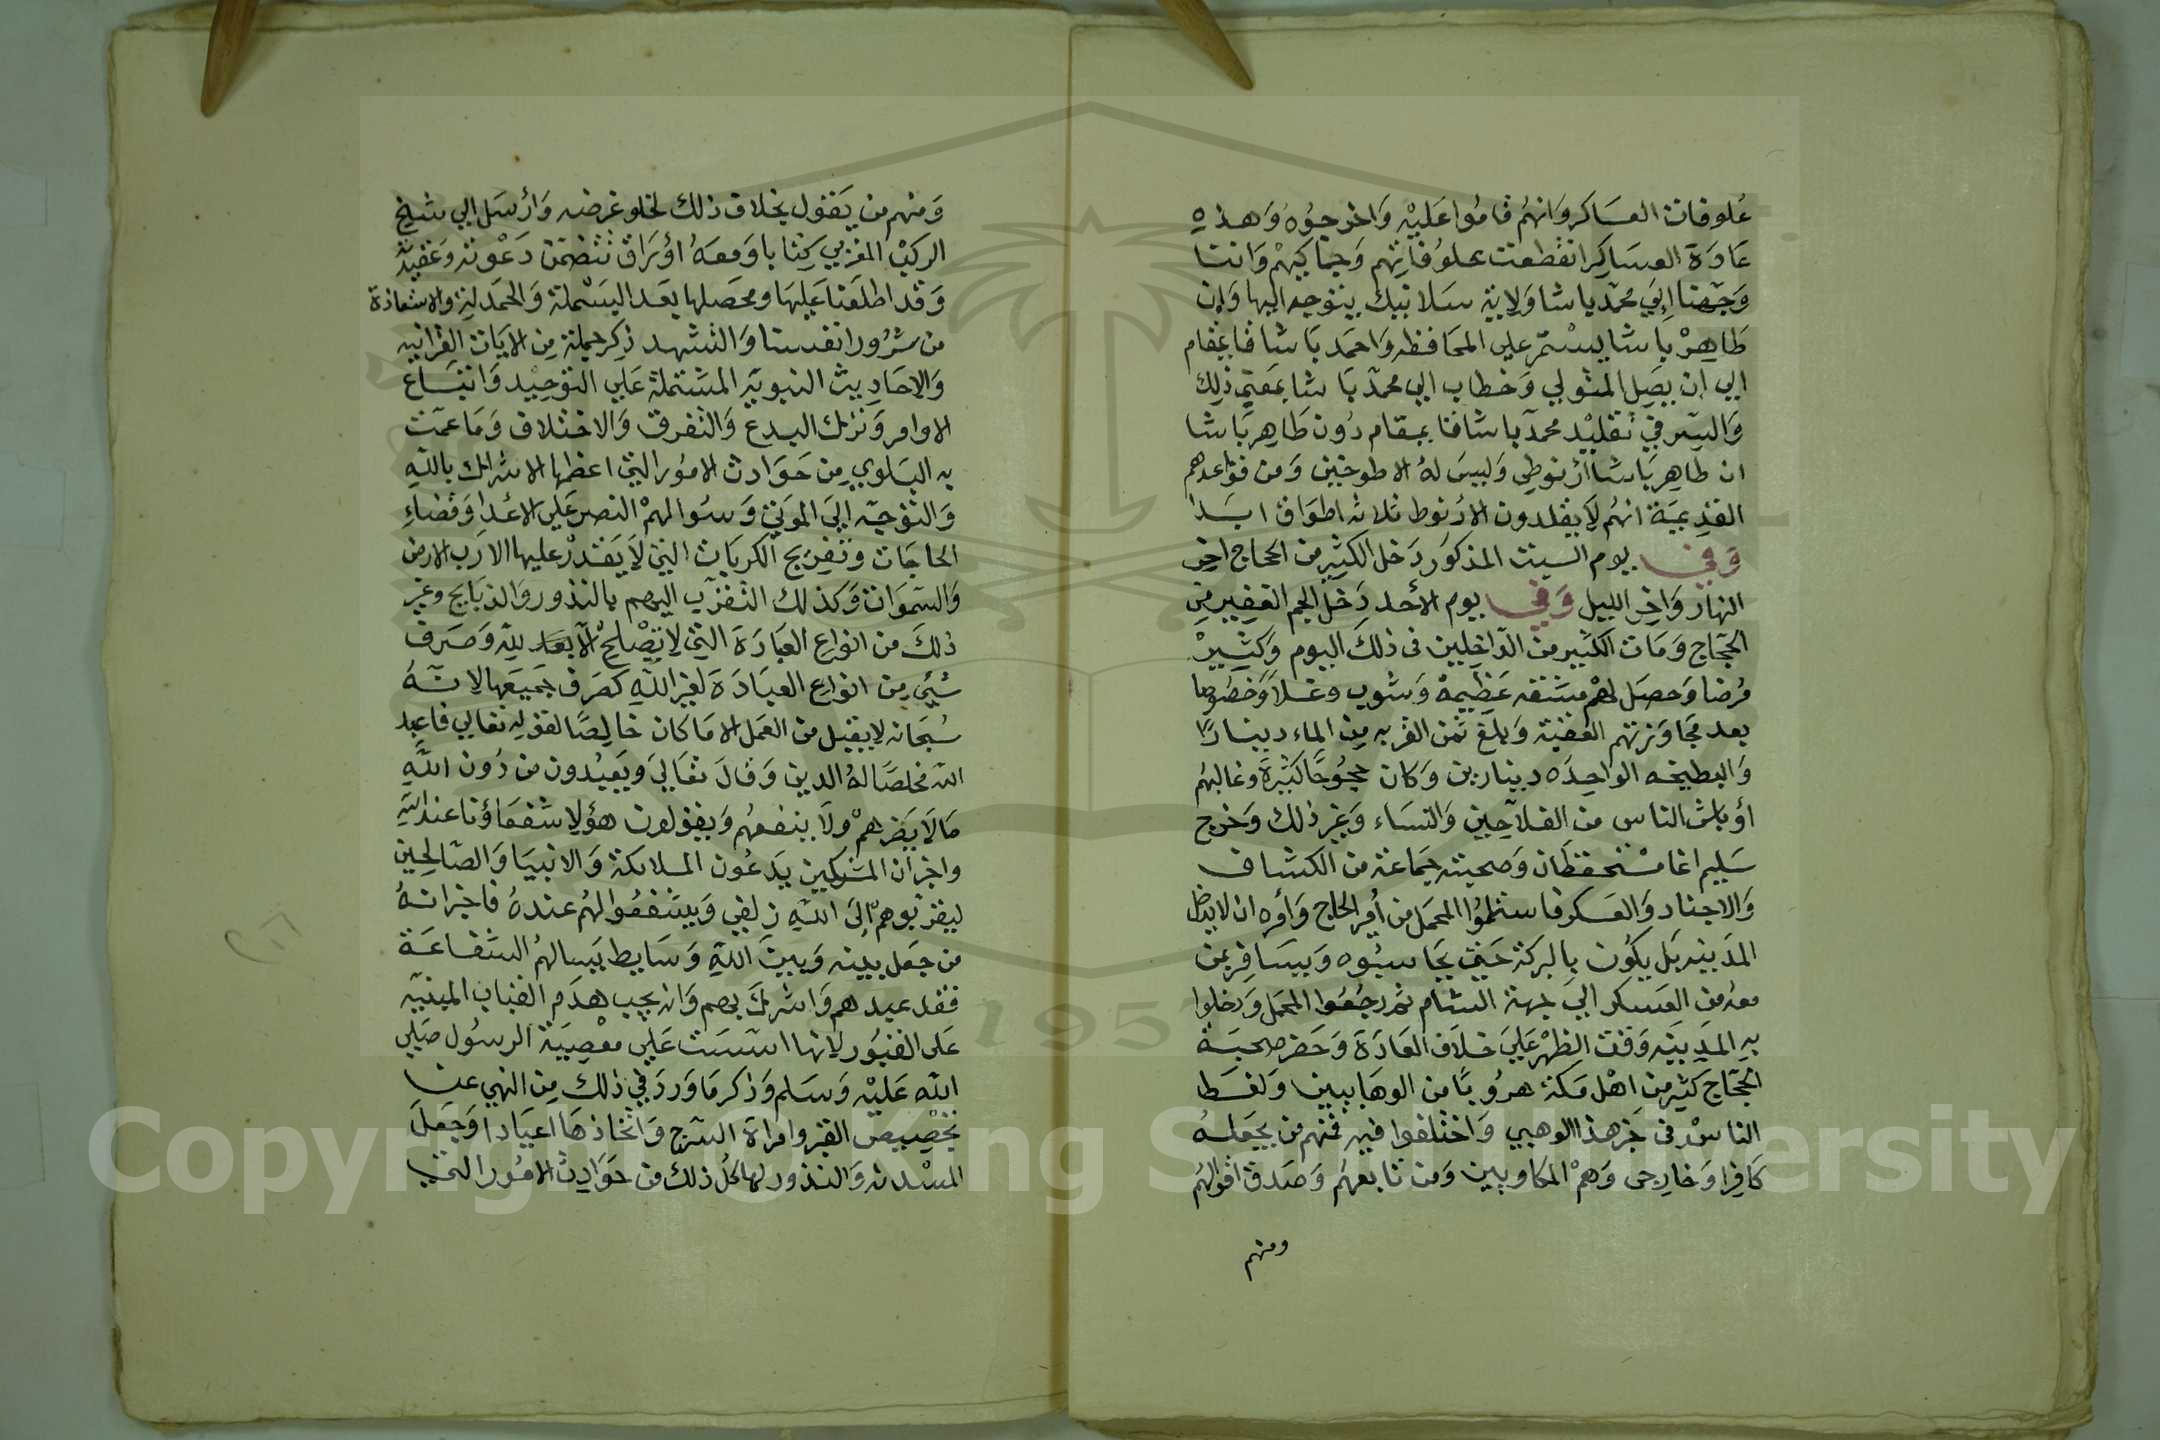 علوفات العساكر وانهم قاموا عليه واخرجوه وهذه
عادة العساكر انقطعت علوفاتهم وجماكيهم واننا
وجهنا الي محمد باشا ولاية سلانيك يتوجه اليها وان
طاهر باشا يستمر علي المحافظه واحمد باشا قايمقام
الي ان يصل المتولي وخطاب الي محمد باشا بمعني ذلك
والسر في تقليد محمد باشا قايمقام دون طاهر باشا
ان طاهر باشا ارنوطي وليس له الا طوخين ومن قواعدهم
القديمة انهم لا يقلدون الارنوط ثلاثه اطواق ابدا
وفي يوم السبت المذكور دخل الكثير من الحجاج اخر
النهار واخر الليل وفي يوم الأحد دخل الجم الغفير من
الحجاج ومات الكثير من الداخلين في ذلك اليوم وكثير
مرضا وحصل لهم مشقه عظيمة وشوب وغلا وخصوصا
بعد مجاوزتهم العقبة وبلغ ثمن القربه من الماء دينارًا
والبطيخه الواحده دينارين وكان حجوجا كثيرة وغالبهم
أوباش الناس من الفلاحين والنساء وغير ذلك وخرج
سليم اغا مستحفظان وصحبته جماعة من الكشاف
والاجناد والعسكر فاستلموا المحمل من أمير الحاج وأمره ان لا يدخل
المدينه بل يكون بالبركة حتي يحاسبوه ويسافر بمن
معه من العسكر الي جهة الشام ثم رجعوا المحمل ودخلوا
به المدينه وقت الظهر علي خلاف العادة وحضر صحبة
الحجاج كثير من اهل مكة هروبًا من الوهابيين ولغط
الناس في خبر هذا الوهبي واختلفوا فيه فمنهم من يجعله
كافرا وخارجي وهم المكاويين ومن تابعهم وصدق اقوالهم
ومنهم
ومنهم من يقول بخلاف ذلك لخلو غرضه وأرسل الي شيخ
الركب المغربي كتابا ومعه أوراق تتضمن دعوته وعقيدته
وقد اطلعنا عليها ومحصلها بعد البسملة والحمدلة والاستعاذة
من شرور انفسنا والتشهد ذكر جملة من الايات القرانيه
والاحاديث النبويه المشتملة علي التوحيد واتباع
الاوامر وترك البدع والتفرق والاختلاف وما عمت
به البلوي من حوادث الامور التي اعظمها الاشراك بالله
والتوجه الي الموتي وسوالهم النصر علي الأعدا وقضاء
الحاجات وتفريج الكربات التي لا يقدر عليها الا رب الارض
والسموات وكذلك التقرب اليهم بالنذور والذبايح وغير
ذلك من انواع العبادة التي لا تصلح الا لله وصرف
شيئ من انواع العبادة لغير الله كصرف جميعها لانه
سبحانه لا يقبل من العمل الا ما كان خالصًا لقوله تعالي فاعبد
الله مخلصًا له الدين وقال تعالي ويعبدون من دون الله
ما لا يضرهم ولا ينفعهم ويقولون هؤلا شفعاؤنا عند الله
واخبر ان المشركين يدعون الملائكة والانبيا والصالحين
ليقربوهم الي الله زلفي ويشفعوا لهم عنده فاخبر انه
من جعل بينه وبين الله وسايط يسالهم الشفاعة
فقد عبدهم واشرك بهم وانه يجب هدم القباب المبنيه
علي القبور لانها اسست علي معصية الرسول صلي
الله عليه وسلم وذكر ما ورد في ذلك من النهي عن
تخصيص القبر وامراة السرج واتخاذها اعيادا وجعل
السدنه والنذور لها كل ذلك من حوادث الامور التي
Copyright © King Saud University
1957